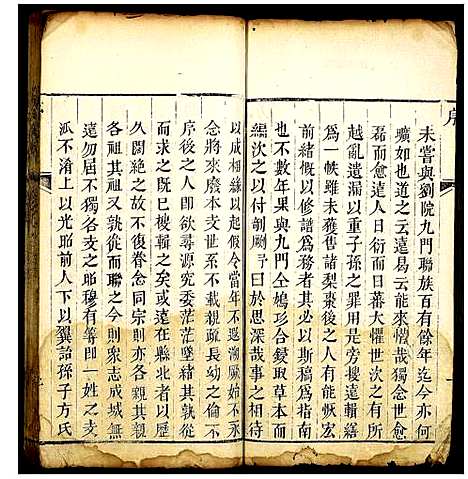 序
未嘗與劉院九門聯族百有餘年迄今亦何
曠如也道之云遠曷云能來慨哉獨念世愈
磊而愈遠人日衍而日蕃大懼世次之有所
越亂遺漏以重子孫之罪用是旁摉遠輯繕
為一帙雖未獲售諸梨棗後之人有能恢宏
前緒慨以修譜為務者其必以斯稿為指南
也不數年果與九門仝鳩珍合鋟取草本而
編次之以付剞劂予曰於思深哉事之相待
以成相緣以起假令當年不遐溯厥始不永
念將來廢本支世系不載親疏長幼之倫不
序後之人即欲尋源究委茫茫墜緒其孰從
而求之既已搜輯之矣或遠在縣北者以歷
久闊絶之故不復眷念同宗則亦各親其親
各祖其祖又孰從而聯之今則衆志成城無
遠勿屆不獨各支之昭穆有等即一姓之支
派不淆上以光昭前人下以翼詒孫子方氏